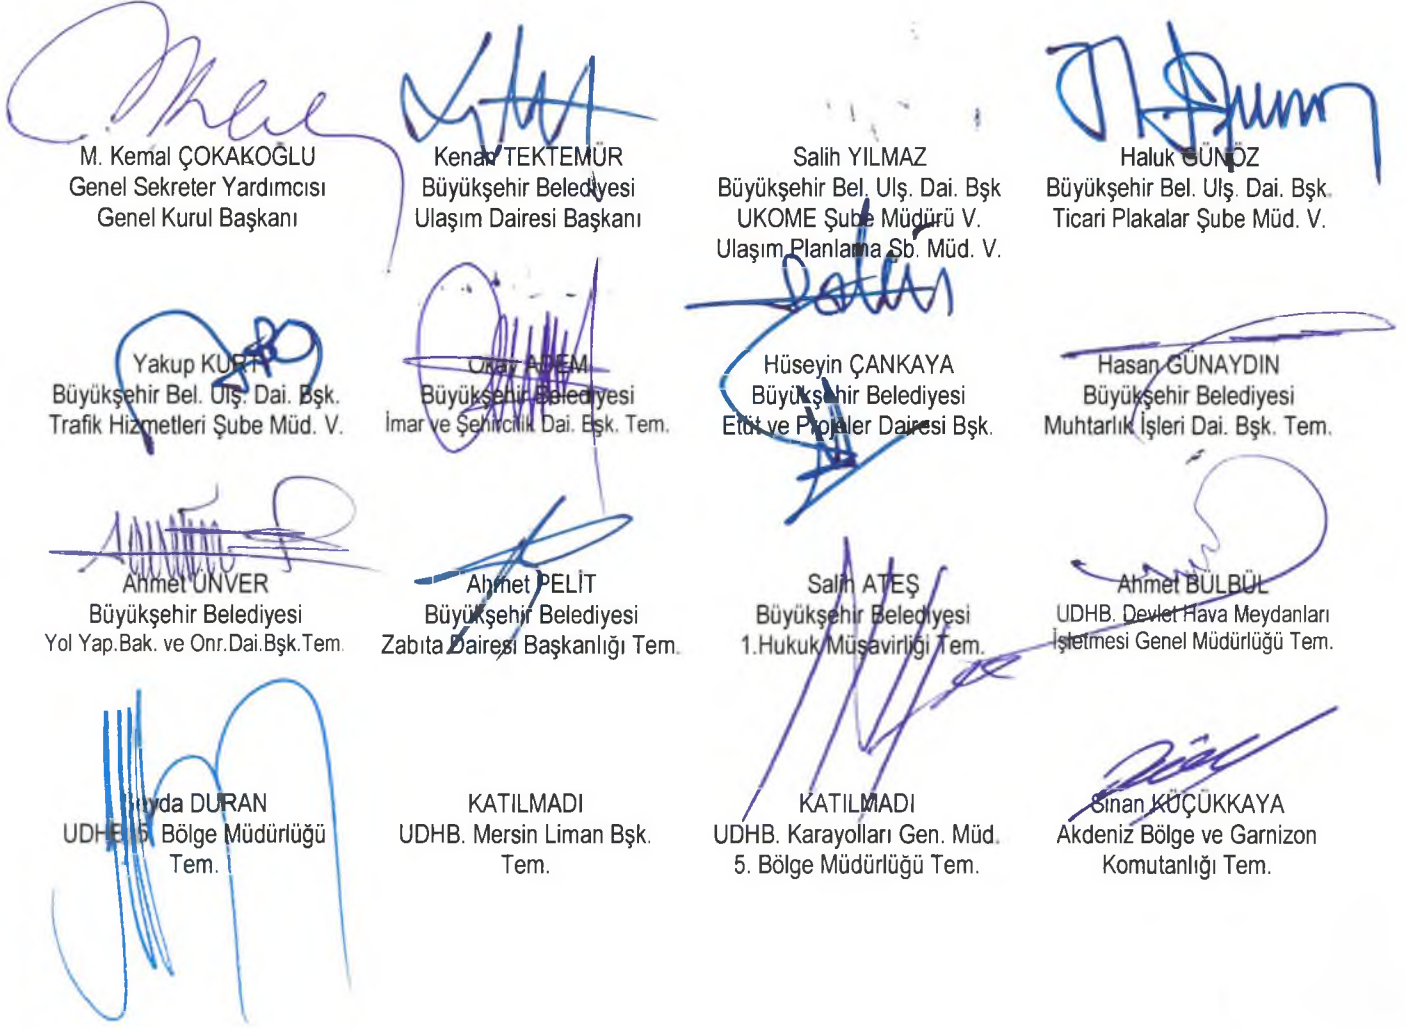 M. Kemal ÇOKAKOĞLU
Genel Sekreter Yardımcısı
Genel Kurul Başkanı
Kenan TEKTEMÜR
Büyükşehir Belediyesi
Ulaşım Dairesi Başkanı
Salih YILMAZ
Büyükşehir Bel. Ulş. Dai. Bşk
UKOME Şube Müdürü V.
Ulaşım Planlama Şb. Müd. V.
Haluk GÜNÖZ
Büyükşehir Bel. Ulş. Dai. Bşk.
Ticari Plakalar Şube Müd. V.
Yakup KURT
Büyükşehir Bel. Ulş. Dai. Bşk.
Trafik Hizmetleri Şube Müd. V.
Okay ADEM
Büyükşehir Belediyesi
İmar ve Şehircilik Dai. Bşk. Tem.
Hüseyin ÇANKAYA
Büyükşehir Belediyesi
Etüt ve Projeler Dairesi Bşk.
Hasan GÜNAYDIN
Büyükşehir Belediyesi
Muhtarlık İşleri Dai. Bşk. Tem.
Ahmet ÜNVER
Büyükşehir Belediyesi
Yol Yap.Bak. ve Onr.Dai.Bşk.Tem.
Ahmet PELİT
Büyükşehir Belediyesi
Zabıta Dairesi Başkanlığı Tem.
Salih ATEŞ
Büyükşehir Belediyesi
1.Hukuk Müşavirliği Tem.
Ahmet BÜLBÜL
UDHB. Devlet Hava Meydanları
İşletmesi Genel Müdürlüğü Tem.
DURAN
UDHB. 5. Bölge Müdürlüğü
Tem.
KATILMADI
UDHB. Mersin Liman Bşk.
Tem.
KATILMADI
UDHB. Karayolları Gen. Müd.
5. Bölge Müdürlüğü Tem.
Sinan KÜÇÜKKAYA
Akdeniz Bölge ve Garnizon
Komutanlığı Tem.